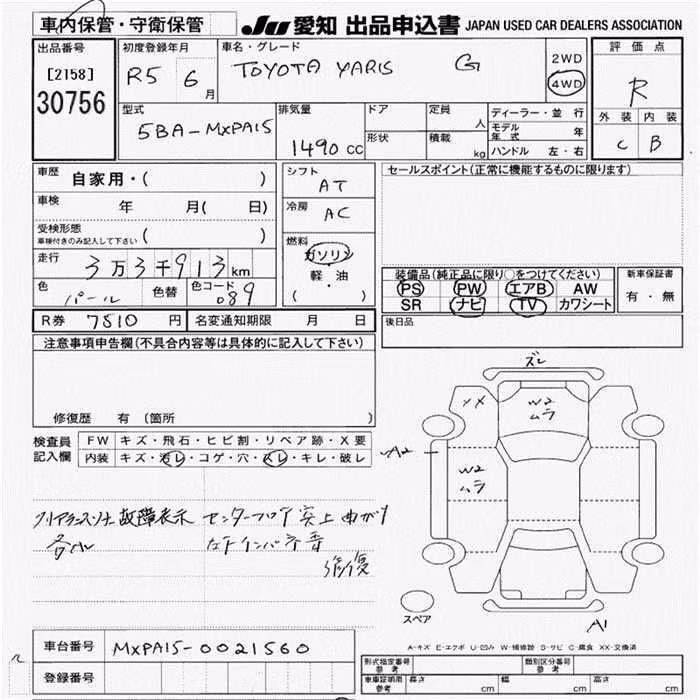 車内保管・守衛保管 JU 愛知 出品申込書 JAPAN USED CAR DEALERS ASSOCIATION
出品番号 初度登録年月 車名・グレード 評価点
[2158] R5 6月 TOYOTA YARIS G 2WD
30756 4WD R
型式 排気量 ドア 定員 人 ディーラー・並行 外装 内装
5BA-MXPA15 1490 cc 形状 積載 kg モデル年式 年 C B
ハンドル 左・右
車歴 自家用・( ) シフト AT セールスポイント(正常に機能するものに限ります)
車検 年 月( 日) 冷房 AC
受検形態 ( )
車検付きのみ記入して下さい
燃料 ガソリン
走行 3万3千913km 軽・油
( )
装備品(純正品に限り○をつけてください) 新車保証書
PS PW エアB AW 有・無
SR ナビ TV カワシート
色 パール 色替 色コード 089
後日品
R券 7510 円 名変通知期限 月 日
注意事項申告欄(不具合内容等は具体的に記入して下さい)
修復歴 有 (箇所 )
検査員記入欄 FW キズ・飛石・ヒビ割・リペア跡・X要
内装 キズ・汚レ・コゲ・穴・スレ・キレ・破レ
ズレ
XX
W2
ムラ
A2
W2
ムラ
クリアランスソナー故障表示 センターフロア突上曲がり
修復
スペア
A1
A-キズ E-エクボ U-凹み W-補修跡 S-サビ C-腐食 XX-交換済
車台番号 MXPA15-0021560
登録番号
形式指定番号 参考 類別区分番号 参考
車庫証明用 参考 長さ cm 幅 cm 高さ cm